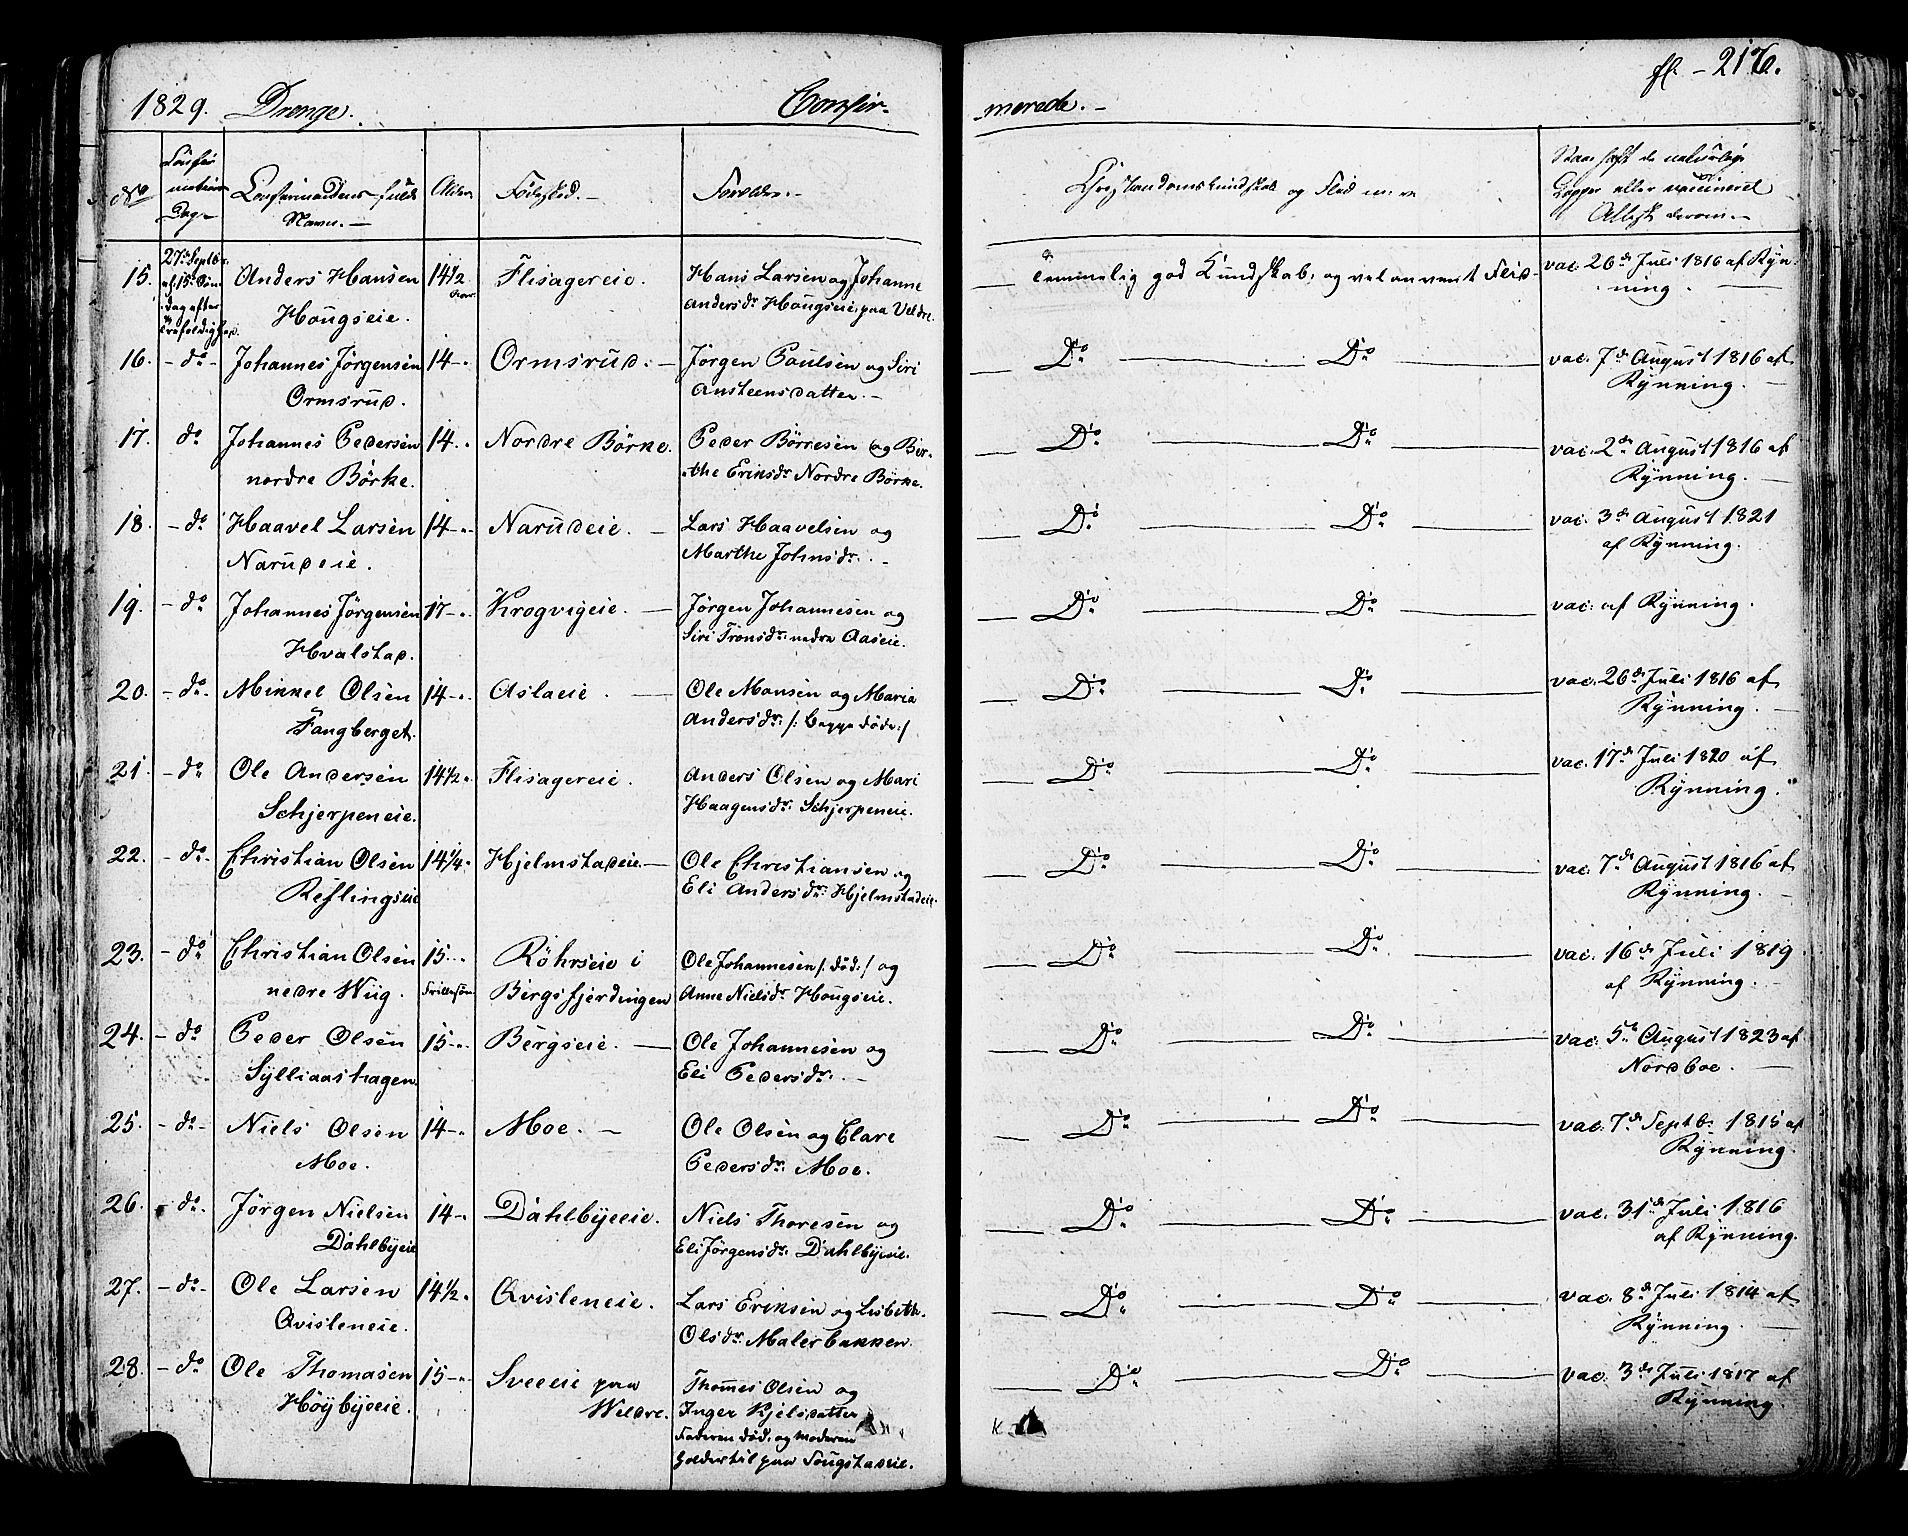 1829. Drenge. Confir-
merede. -
fl. - 216.
No
Confir
mations
Dag-
Confirmandens fulde
Navn. -
Alder
Födested. -
Forældre. -
Christendomskundskab og Flid m. v.
naturlige
Kopper eller vaccineret
Attest derom. -
15.
27de Septbr.
ef. 15de Søn-
dag efter
Trefoldighed.
Anders Hansen
Hougseie.
14½ Aar.
Flisagereie.
Hans Larsen og Johanne
Andersdr. Hougseie paa Veldre.
Temmelig god Kundskab, og vel anvent Flid-
vac. 26de Juli 1816 af Ryn-
ning.
16. - do - Johannes Jörgensen
Ormsrud.
14 - Ormsrud. -
Jörgen Paulsen og Siri
Ansteensdatter. -
Do Do
vac. 7de August 1816 af
Rynning.
17. do Johannes Pedersen
nordre Börke.
14. Nordre Börke.
Peder Börresen og Ber-
the Eriksdr. Nordre Börke.
Do Do
vac. 2de August 1816 af
Rynning.
18. - do Haavel Larsen
Narudeie.
14 - Narudeie. -
Lars Haavelsen og
Marthe Johnsdr. -
Do Do
vac. 3de August 1821
af Rynning.
19. - do Johannes Jörgensen
Hvalstad.
17 - Krogvigeie. -
Jörgen Johannesen og
Siri Tronsdr. nedre Aaseie.
Do Do
vac. af Rynning.
20. - do - Mikkel Olsen
Fangberget.
14 - Aslaeie. -
Ole Monsen og Maria
Andersdr. /: begge döde :/
Do Do
vac. 26de Juli 1816 af
Rynning.
21. - do Ole Andersen
Schjerpeneie.
14½ Flisagereie.
Anders Olsen og Mari
Haagensdr. Schjerpeneie.
Do Do
vac. 17de Juli 1820 af
Rynning.
22. - do - Christian Olsen
Reflingseie
14¼ Hjelmstadeie -
Ole Christiansen og
Eli Andersdr. Hjelmstadeie.
Do Do
vac. 7de August 1816 af
Rynning.
23. - do Christian Olsen
nedre Wiig.
15. Röhrseie i
Bergsfjerdingen
Ole Johannesen /: död :/ og
Anne Nielsdr. Hougseie.
Do Do
vac. 16de Juli 1819
af Rynning.
24. - do Peder Olsen
Sylliaashagen
15 - Bergseie. -
Ole Johannesen og
Eli Pedersdr. -
Do Do
vac. 5te August 1823 af
Nordboe.
25. - do - Niels Olsen
Moe.
14 - Moe. -
Ole Olsen og Clare
Pedersdr. Moe.
Do Do
vac. 7de Septb. 1815 af
Rynning
26. - do - Jörgen Nielsen
Dahlbyeie
14 - Dahlbyeeie.
Niels Thoresen og
Eli Jörgensdr. Dahlbyeie.
Do Do
vac. 31de Juli 1816
af Rynning.
27. - do - Ole Larsen
Qvisleneie.
14½. Qvisleneie.
Lars Eriksen og Lisbeth
Olsdr. Malerbakken.
Do Do
vac. 8de Juli 1814 af
Rynning.
28. - do Ole Thomasen
Höybyeeie.
15 - Sveeeie paa
Weldre.
Thomes Olsen og
Inger Kjelsdatter
Faderen död, og Moderen
holder til paa Tougstadeie.
Do Do
vac. 3de Juli 1817 af
Rynning.